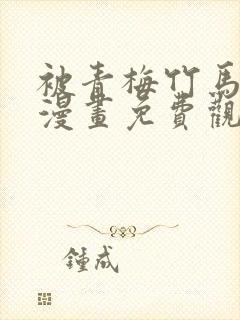 被青梅竹馬
漫畫免費觀
鍾成